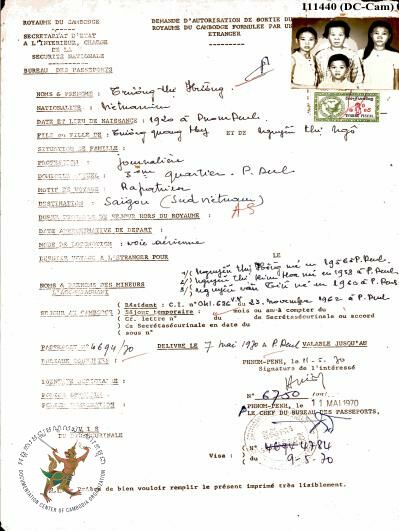 I11440 (DC-Cam)
ROYAUME DU CAMBODGE
SECRETARIAT D'ETAT
A L'INTERIEUR, CHARGE
DE LA
SECURITE NATIONALE
BUREAU DES PASSEPORTS
DEMANDE D'AUTORISATION DE SORTIE DU
ROYAUME DU CAMBODGE FORMULEE PAR UN
ETRANGER
NOMS & PRENOMS : Trương thị Hường
NATIONALITE : Vietnamienne
DATE ET LIEU DE NAISSANCE : 1920 à PnomPenh.
FILS ou FILLE DE : Trương quang Huy ET DE Nguyễn thị Ngô
SITUATION DE FAMILLE :
PROFESSION : Journalière
3ème quartier. P. Penh
MOTIF DE VOYAGE : Rapatriée
DESTINATION : Saïgon (Sud Vietnam)
DUREE PROBABLE DE SEJOUR HORS DU ROYAUME :
DATE APPROXIMATIVE DE DEPART :
MODE DE LOCOMOTION : voie aérienne
DERNIER VOYAGE A L'ETRANGER POUR LE
NOMS & PRENOMS DES MINEURS
1/ Nguyễn thị Hồng né en 1956 à P. Penh.
2/ Nguyễn thị Kim Hoa né en 1958 à P. Penh.
3/ Nguyễn văn né en 1960 à P. Penh
SEJOUR AU CAMBODGE
( Résident : C.I. n° 23. novembre 1962 à P. Penh
( Séjour temporaire : mois ou an/à compter du
( Cf. lettre n° du Secrétasécurinale ou accord
( du Secrétasécurinale en date du
( sous n°
PASSEPORT N° 4694/70 DELIVRE LE 7 mai 1970 à P. Penh VALABLE JUSQU'AU
PHNOM-PENH, le 11-5-70
Signature de l'intéressé
N° 6750
PHNOM-PENH, le 11 MAI 1970
LE CHEF DU BUREAU DES PASSEPORTS,
VISA
Visa : ( n° 4784
( du 9-5-70
N.B. Prière de bien vouloir remplir le présent imprimé très lisiblement.
DOCUMENTATION CENTER OF CAMBODIA ORGANIZATION